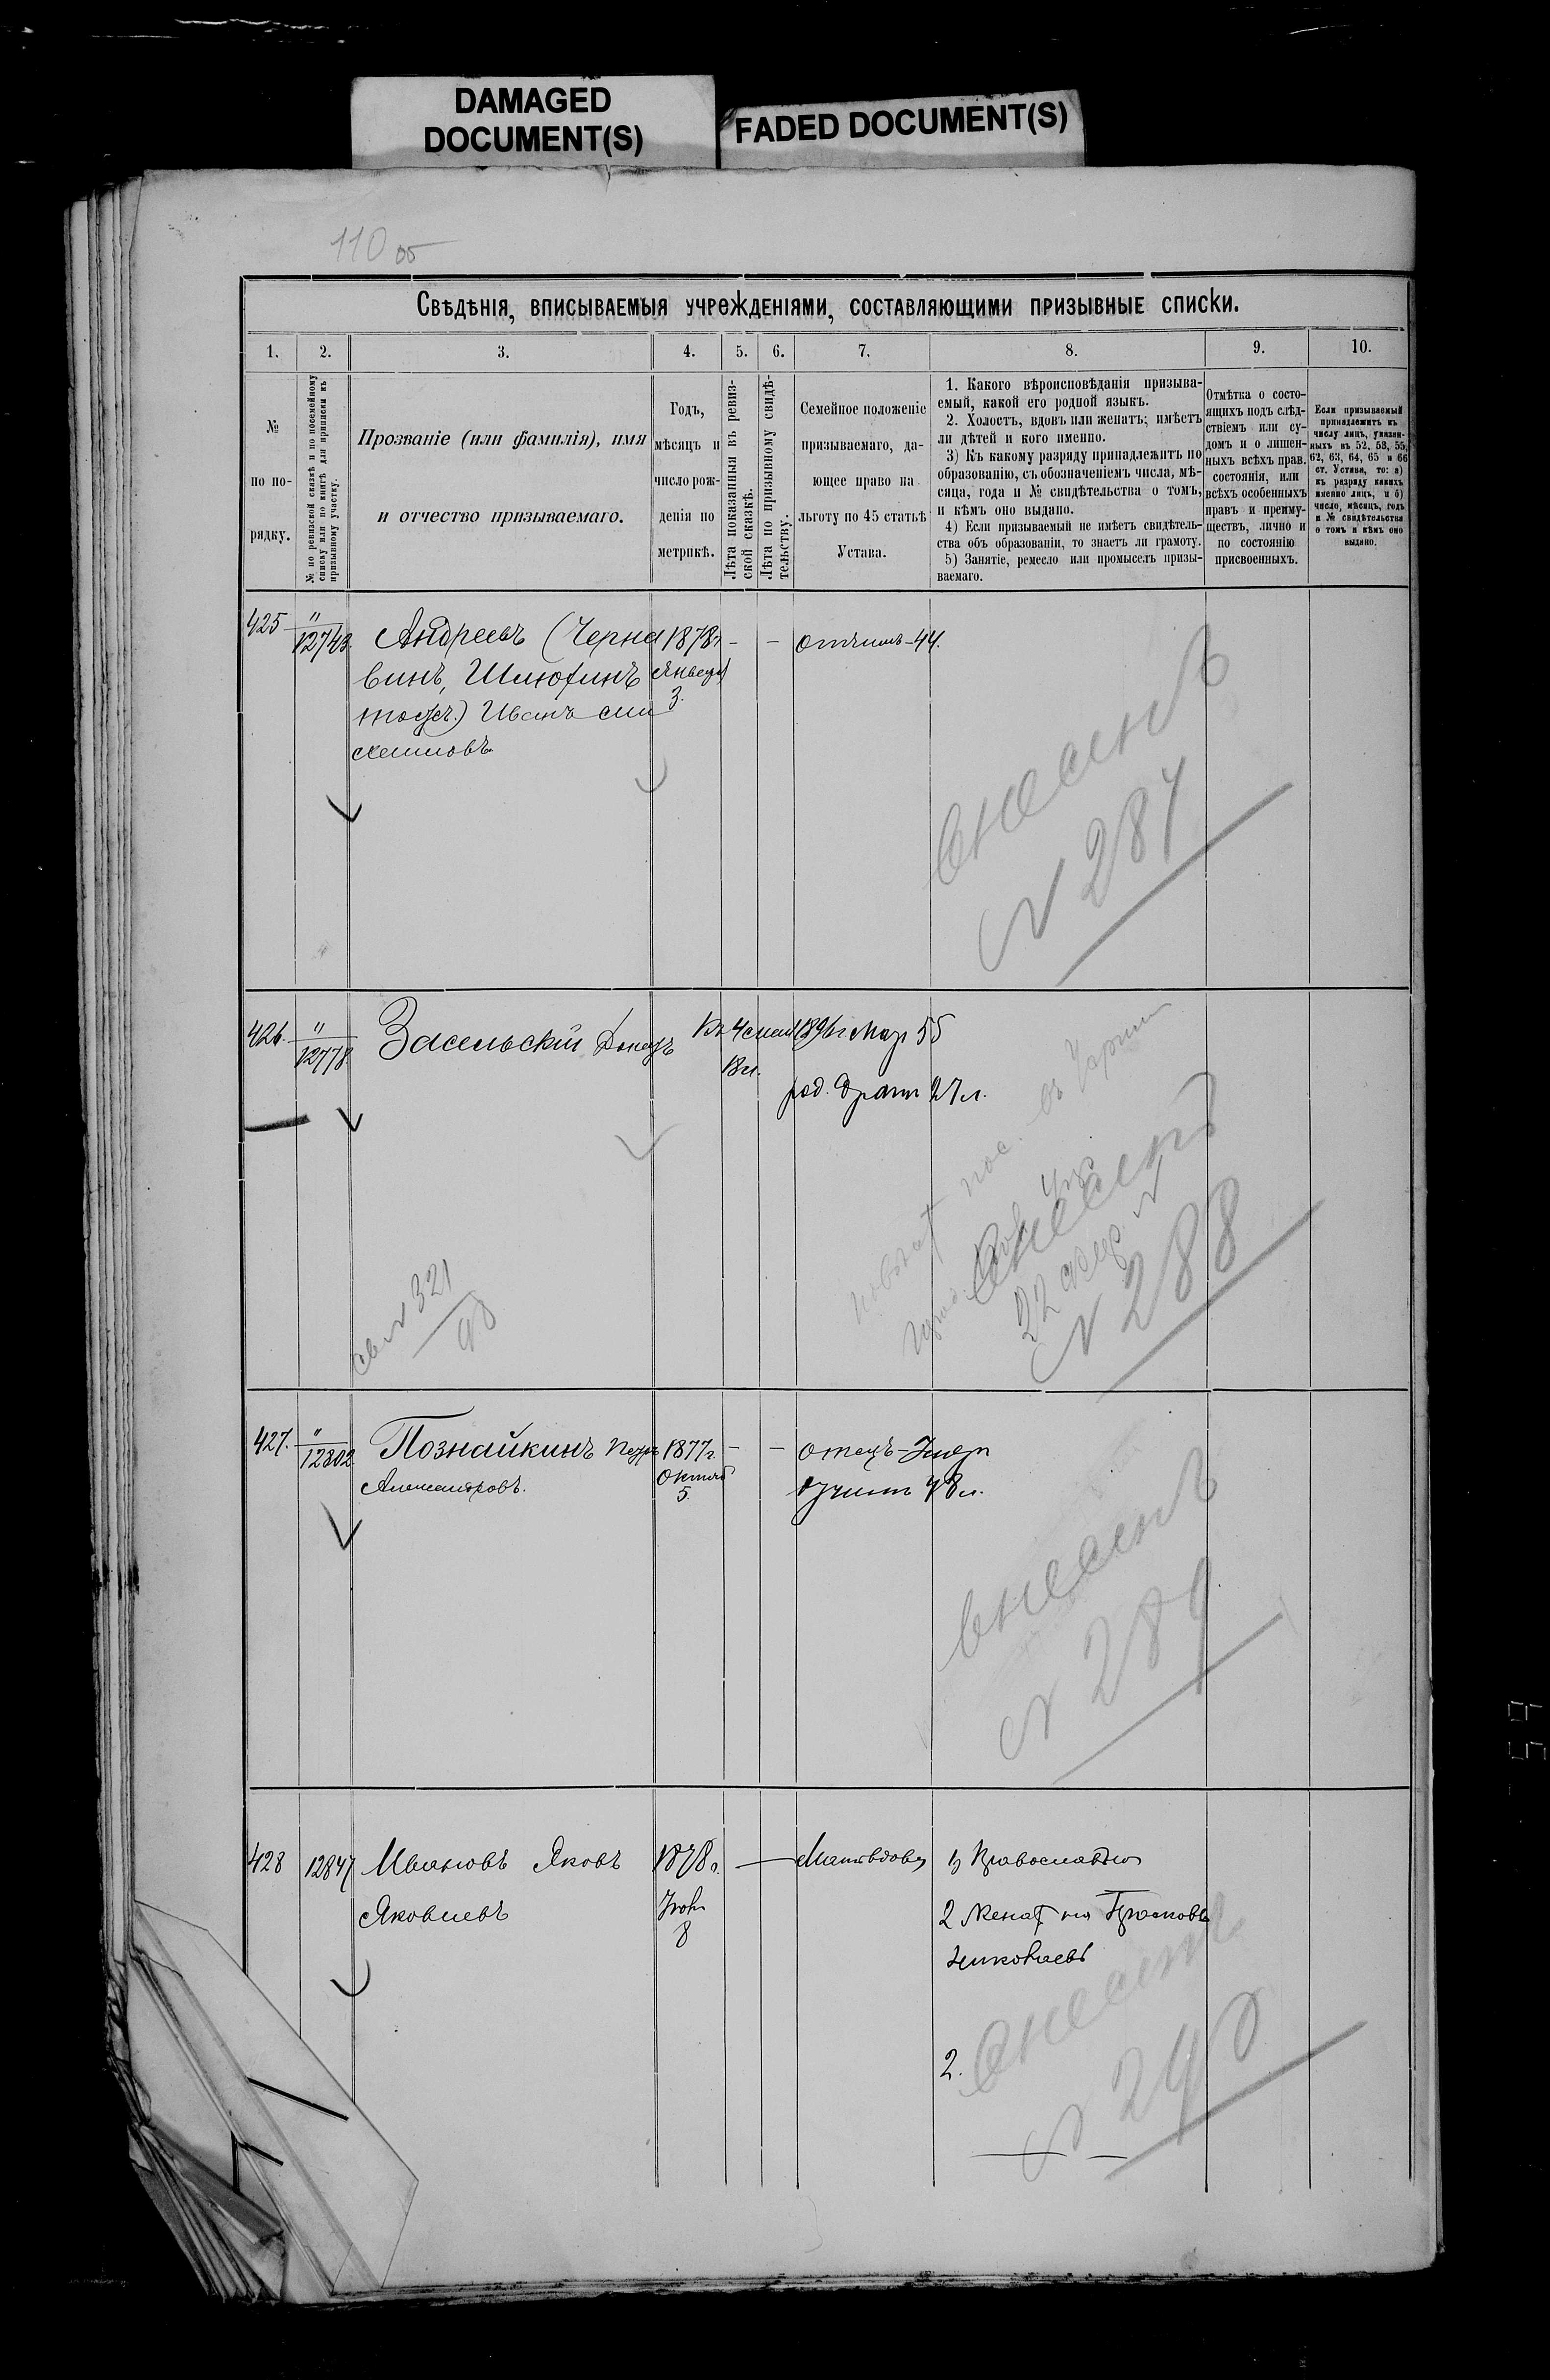 DAMAGED
DOCUMENT(S)
FADED DOCUMENT(S)
110 об
Свѣдѣнія, вписываемыя учрежденіями, составляющими призывные списки.
1.
2.
3.
4.
5.
6.
7.
8.
9.
10.
№
по по-
рядку.
№ по ревизской сказкѣ и по посемейному
списку или по книгѣ для приписки къ
призывному участку.
Прозваніе (или фамилія), имя
и отчество призываемаго.
Годъ,
мѣсяцъ и
число рож-
денія по
метрикѣ.
Лѣта показанныя въ ревиз-
ской сказкѣ.
Лѣта по призывному свидѣ-
тельству.
Семейное положеніе
призываемаго, да-
ющее право на
льготу по 45 статьѣ
Устава.
1. Какого вѣроисповѣданія призыва-
емый, какой его родной языкъ.
2. Холостъ, вдовъ или женатъ; имѣетъ
ли дѣтей и кого именно.
3) Къ какому разряду принадлежитъ по
образованію, съ обозначеніемъ числа, мѣ-
сяца, года и № свидѣтельства о томъ,
и кѣмъ оно выдано.
4) Если призываемый не имѣетъ свидѣтель-
ства объ образованіи, то знаетъ ли грамоту.
5) Занятіе, ремесло или промыселъ призы-
ваемаго.
Отмѣтка о состо-
ящихъ подъ слѣд-
ствіемъ или су-
домъ и о лишен-
ныхъ всѣхъ прав.
состоянія, или
всѣхъ особенныхъ
правъ и преиму-
ществъ, лично и
по состоянію
присвоенныхъ.
Если призываемый
принадлежитъ къ
числу лицъ, указан-
ныхъ въ 52, 53, 55,
62, 63, 64, 65 и 66
ст. Устава, то: а)
къ разряду какихъ
именно лицъ, и б)
число, мѣсяцъ, годъ
и № свидѣтельства
о томъ и кѣмъ оно
выдано.
425
"
12743.
Андреевъ (Черна
винъ,
Иванъ
1878г
Января
3.
- -
отчимъ-44.
внесенъ
№ 287
426.
"
12778.
Засельскій
18л.
55
род. братъ 27л.
321
внесенъ
№ 288
427.
"
12802
Познайкинъ Петръ
Александровъ.
1877г.
Октяб
5.
- -
отецъ-
48л.
внесенъ
№ 289
428
12847
Ивановъ Яковъ
Яковлевъ
1878г.
8
1) Православно
2 Женат на Прасковь
Николаевѣ
2.
внесенъ
№ 290